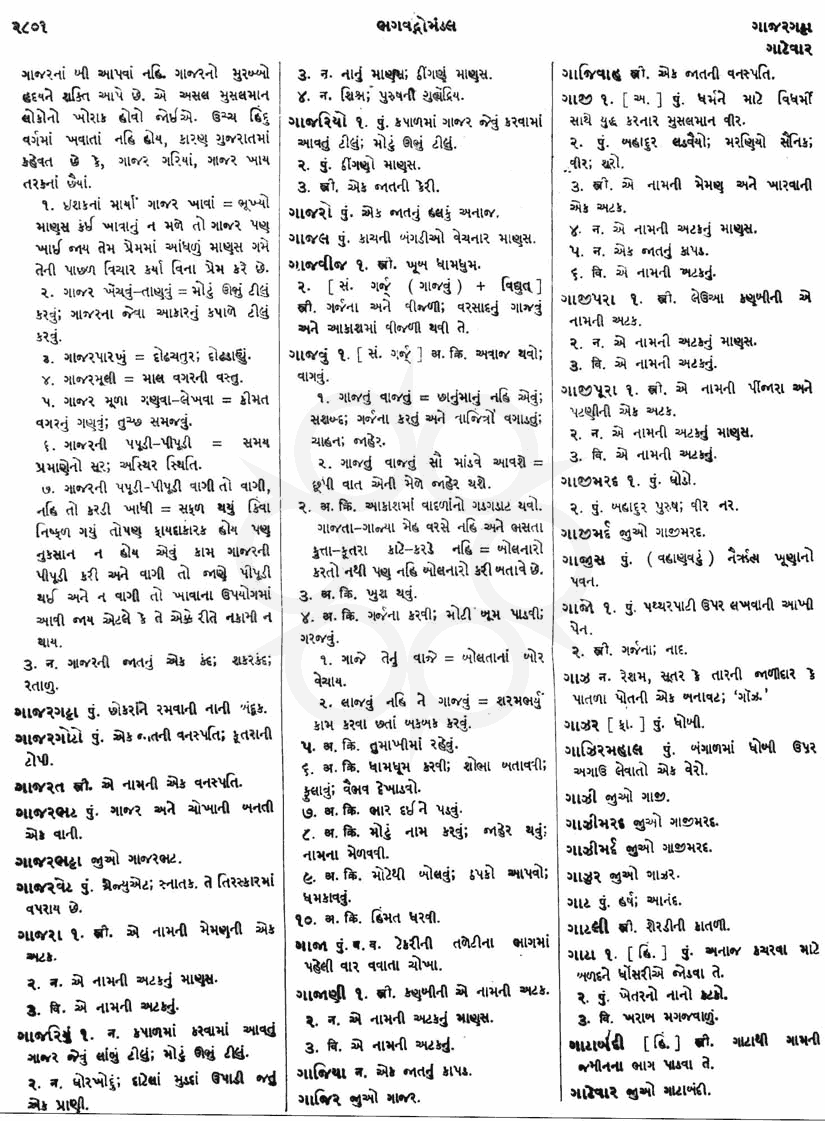 ૨૮૦૧
ભગવદ્ગોમંડલ
ગાજરગટ્ટા
ગાટેવાર
ગાજરનાં બી આપવાં નહિ. ગાજરનો મુરબ્બો
હૃદયને શક્તિ આપે છે. એ અસલ મુસલમાન
લોકોનો ખોરાક હોવો જોઈએ. ઉચ્ચ હિંદુ
વર્ગમાં ખવાતાં નહિ હોય, કારણ ગુજરાતમાં
કહેવત છે કે, ગાજર ગરિયાં, ગાજર ખાય
તરકનાં છૈયાં.
૧. ઇશકનાં માર્યાં ગાજર ખાવાં = ભૂખ્યો
માણસ કંઈ ખાવાનું ન મળે તો ગાજર પણ
ખાઈ જાય તેમ પ્રેમમાં આંધળું માણસ ગમે
તેની પાછળ વિચાર કર્યા વિના પ્રેમ કરે છે.
૨. ગાજર ખેંચવું-તાણવું = મોટું ઊભું ટીલું
કરવું; ગાજરના જેવા આકારનું કપાળે ટીલું
કરવું.
૩. ગાજરપારખું = દોઢચતુર; દોઢડાહ્યું.
૪. ગાજરમૂલી = માલ વગરની વસ્તુ.
૫. ગાજર મૂળા ગણવા-લેખવા = કીમત
વગરનું ગણવું; તુચ્છ સમજવું.
૬. ગાજરની પપૂડી-પીપૂડી = સમય
પ્રમાણેનો સૂર; અસ્થિર સ્થિતિ.
૭. ગાજરની પપૂડી-પીપૂડી વાગી તો વાગી,
નહિ તો કરડી ખાધી = સફળ થયું કિંવા
નિષ્ફળ ગયું તોપણ ફાયદાકારક હોય પણ
નુકસાન ન હોય એવું કામ ગાજરની
પીપૂડી કરી અને વાગી તો જાણે પીપૂડી
થઈ અને ન વાગી તો ખાવાના ઉપયોગમાં
આવી જાય એટલે કે તે એકે રીતે નકામી ન
થાય.
૩. ન. ગાજરની જાતનું એક કંદ; શકરકંદ;
રતાળુ.
ગાજરગટ્ટા પું. છોકરાંને રમવાની નાની બંદૂક.
ગાજરગોટો પું. એક જાતની વનસ્પતિ; કૂતરાની
ટોપી.
ગાજરત સ્ત્રી. એ નામની એક વનસ્પતિ.
ગાજરભટ પું. ગાજર અને ચોખાની બનતી
એક વાની.
ગાજરભટ્ટા જુઓ ગાજરભટ.
ગાજરવેટ પું. ગ્રેજ્યુએટ; સ્નાતક. તે તિરસ્કારમાં
વપરાય છે.
ગાજરા ૧. સ્ત્રી. એ નામની મેમણની એક
અટક.
૨. ન. એ નામની અટકનું માણસ.
૩. વિ. એ નામની અટકનું.
ગાજરિયું ૧. ન. કપાળમાં કરવામાં આવતું
ગાજર જેવું લાંબું ટીલું; મોટું ઊભું ટીલું.
૨. ન. ઘોરખોદું; દાટેલાં મુડદાં ઉપાડી જતું
એક પ્રાણી.
૩. ન. નાનું માણસ; ઠીંગણું માણસ.
૪. ન. શિશ્ન; પુરુષની ગુહ્યેંદ્રિય.
ગાજરિયો ૧. પું. કપાળમાં ગાજર જેવું કરવામાં
આવતું ટીલું; મોટું ઊભું ટીલું.
૨. પું. ઠીંગણો માણસ.
૩. સ્ત્રી. એક જાતની કેરી.
ગાજરો પું. એક જાતનું હલકું અનાજ.
ગાજલ પું. કાચની બંગડીઓ વેચનાર માણસ.
ગાજવીજ ૧. સ્ત્રી. ખૂબ ધામધુમ.
૨. [ સં. ગર્જ્ ( ગાજવું ) + વિદ્યુત્ ]
સ્ત્રી. ગર્જના અને વીજળી; વરસાદનું ગાજવું
અને આકાશમાં વીજળી થવી તે.
ગાજવું ૧. [ સં. ગર્જ્ ] અ. ક્રિ. અવાજ થવો;
વાગવું.
૧. ગાજતું વાજતું = છાનુંમાનું નહિ એવું;
સશબ્દ; ગર્જના કરતું અને વાજિંત્રો વગાડતું;
ચાહન; જાહેર.
૨. ગાજતું વાજતું સૌ માંડવે આવશે =
છૂપી વાત એની મેળે જાહેર થશે.
૨. અ. ક્રિ. આકાશમાં વાદળાંનો ગડગડાટ થવો.
ગાજતા-ગાજ્યા મેહ વરસે નહિ અને ભસતા
કુત્તા-કૂતરા કાટે-કરડે નહિ = બોલનારો
કરતો નથી પણ નહિ બોલનારો કરી બતાવે છે.
૩. અ. ક્રિ. ખુશ થવું.
૪. અ. ક્રિ. ગર્જના કરવી; મોટી બૂમ પાડવી;
ગરજવું.
૧. ગાજે તેનું વાજે = બોલતાનાં બોર
વેચાય.
૨. લાજવું નહિ તે ગાજવું = શરમભર્યું
કામ કરવા છતાં બકબક કરવું.
૫. અ. ક્રિ. તુમાખીમાં રહેવું.
૬. અ. ક્રિ. ધામધૂમ કરવી; શોભા બતાવવી;
ફુલાવું; વૈભવ દેખાડવો.
૭. અ. ક્રિ. ભાર દઈને પડવું.
૮. અ. ક્રિ. મોટું નામ કરવું; જાહેર થવું;
નામના મેળવવી.
૯. અ. ક્રિ. મોટેથી બોલવું; ઠપકો આપવો;
ધમકાવવું.
૧૦. અ. ક્રિ. હિંમત ધરવી.
ગાજા પું. બ. વ. ટેકરીની તળેટીના ભાગમાં
પહેલી વાર વવાતા ચોખા.
ગાજાણી ૧. સ્ત્રી. કણબીની એ નામની અટક.
૨. ન. એ નામની અટકનું માણસ.
૩. વિ. એ નામની અટકનું.
ગાજિયા ન. એક જાતનું કાપડ.
ગાજિર જુઓ ગાજર.
ગાજિવાહ સ્ત્રી. એક જાતની વનસ્પતિ.
ગાજી ૧. [ અ. ] પું. ધર્મને માટે વિધર્મી
સાથે યુદ્ધ કરનાર મુસલમાન વીર.
૨. પું. બહાદુર લડવૈયો; મરણિયો સૈનિક;
વીર; શૂરો.
૩. સ્ત્રી. એ નામની મેમણ અને ખારવાની
એક અટક.
૪. ન. એ નામની અટકનું માણસ.
૫. ન. એક જાતનું કાપડ.
૬. વિ. એ નામની અટકનું.
ગાજીપરા ૧. સ્ત્રી. લેઉઆ કણબીની એ
નામની અટક.
૨. ન. એ નામની અટકનું માણસ.
૩. વિ. એ નામની અટકનું.
ગાજીપૂરા ૧. સ્ત્રી. એ નામની પીંજારા અને
પટણીની એક અટક.
૨. ન. એ નામની અટકનું માણસ.
૩. વિ. એ નામની અટકનું.
ગાજીમરદ ૧. પું. ઘોડો.
૨. પું. બહાદુર પુરુષ; વીર નર.
ગાજીમર્દ જુઓ ગાજીમરદ.
ગાજીસ પું. ( વહાણવટું ) નૈર્ઋત્ય ખૂણાનો
પવન.
ગાજો ૧. પું. પથ્થરપાટી ઉપર લખવાની આખી
પેન.
૨. સ્ત્રી. ગર્જના; નાદ.
ગાઝ ન. રેશમ, સૂતર કે તારની જાળીદાર કે
પાતળા પોતની એક બનાવટ; ‘ગૉઝ.’
ગાઝર [ ફા. ] પું. ધોબી.
ગાઝિરમહાલ પું. બંગાળમાં ધોબી ઉપર
અગાઉ લેવાતો એક વેરો.
ગાઝી જુઓ ગાજી.
ગાઝીમરદ જુઓ ગાજીમરદ.
ગાઝીમર્દ જુઓ ગાજીમરદ.
ગાઝુર જુઓ ગાઝર.
ગાટ પું. હર્ષ; આનંદ.
ગાટલી સ્ત્રી. શેરડીની કાતળી.
ગાટા ૧. [ હિં. ] પું. અનાજ કચરવા માટે
બળદને ધોંસરીએ જોડવા તે.
૨. પું. ખેતરનો નાનો કટકો.
૩. વિ. ખરાબ મગજવાળું.
ગાટાબંદી [ હિં. ] સ્ત્રી. ગાટાથી ગામની
જમીનના ભાગ પાડવા તે.
ગાટેવાર જુઓ ગાટાબંદી.